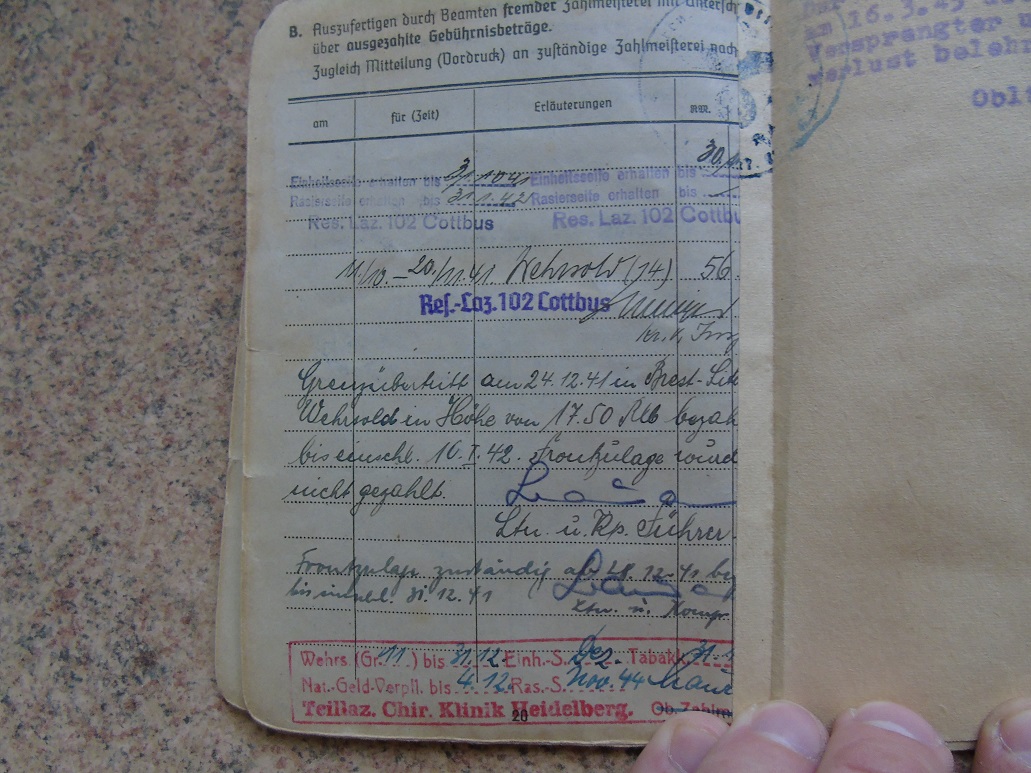 B. Auszufertigen durch Beamten fremder Zahlmeisterei mit Untersch
über ausgezahlte Gebührnisbeträge.
Zugleich Mitteilung (Vordruck) an zuständige Zahlmeisterei nach
am für (Zeit) Erläuterungen RM.
30.
Einheitsseife erhalten bis 31.10.41 Einheitsseife erhalten bis
Rasierseife erhalten bis 31.1.42 Rasierseife erhalten bis
Res. Laz. 102 Cottbus Res. Laz. 102 Cottbu
11./10. – 20./11.41 Wehrsold (14) 56
Res.-Laz. 102 Cottbus
Grenzübertritt am 24.12.41 in Brest-Lit
Wehrsold in Höhe von 17.50 RM bezah
bis einschl. 10.I.42. Frontzulage wurd
nicht gezahlt.
Ltn. u. Kp. Führer
Frontzulage zuständig ab 28.12.41 be
bis einschl. 31.12.41
Ltn. u. Komp.
Wehrs. (Gr. 11) bis 31.12 Einh.-S. Dez. Tabak 31.
Nat.-Geld-Verpfl. bis 4.12 Ras.-S. Nov. 44
Teillaz. Chir. Klinik Heidelberg. Ob. Zahlm
20
am 16.3.45
Versprengter
verlust belehr